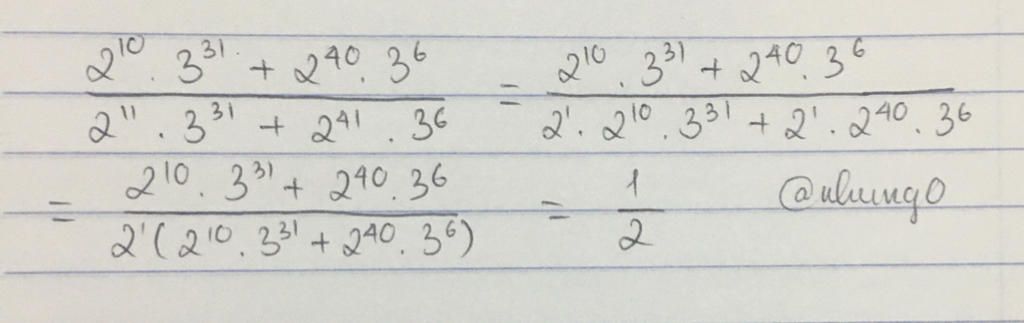 \frac{2^{10} . 3^{31} + 2^{40} . 3^{6}}{2^{11} . 3^{31} + 2^{41} . 3^{6}} = \frac{2^{10} . 3^{31} + 2^{40} . 3^{6}}{2^{1} . 2^{10} . 3^{31} + 2^{1} . 2^{40} . 3^{6}}
= \frac{2^{10} . 3^{31} + 2^{40} . 3^{6}}{2^{1} ( 2^{10} . 3^{31} + 2^{40} . 3^{6} )} = \frac{1}{2} @nhung0